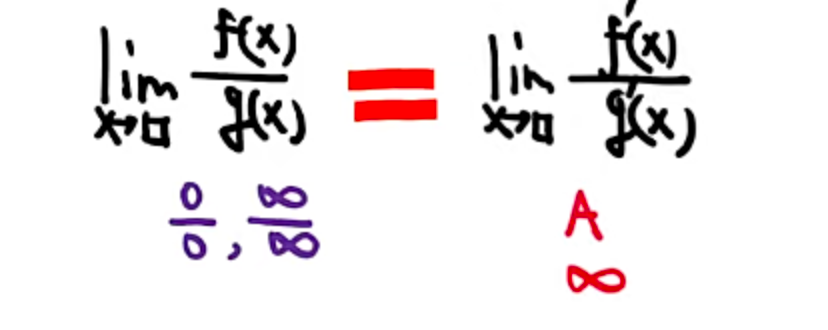 lim x→□ f(x)/g(x) = lim x→□ f'(x)/g'(x)
0/0 , ∞/∞ A
∞